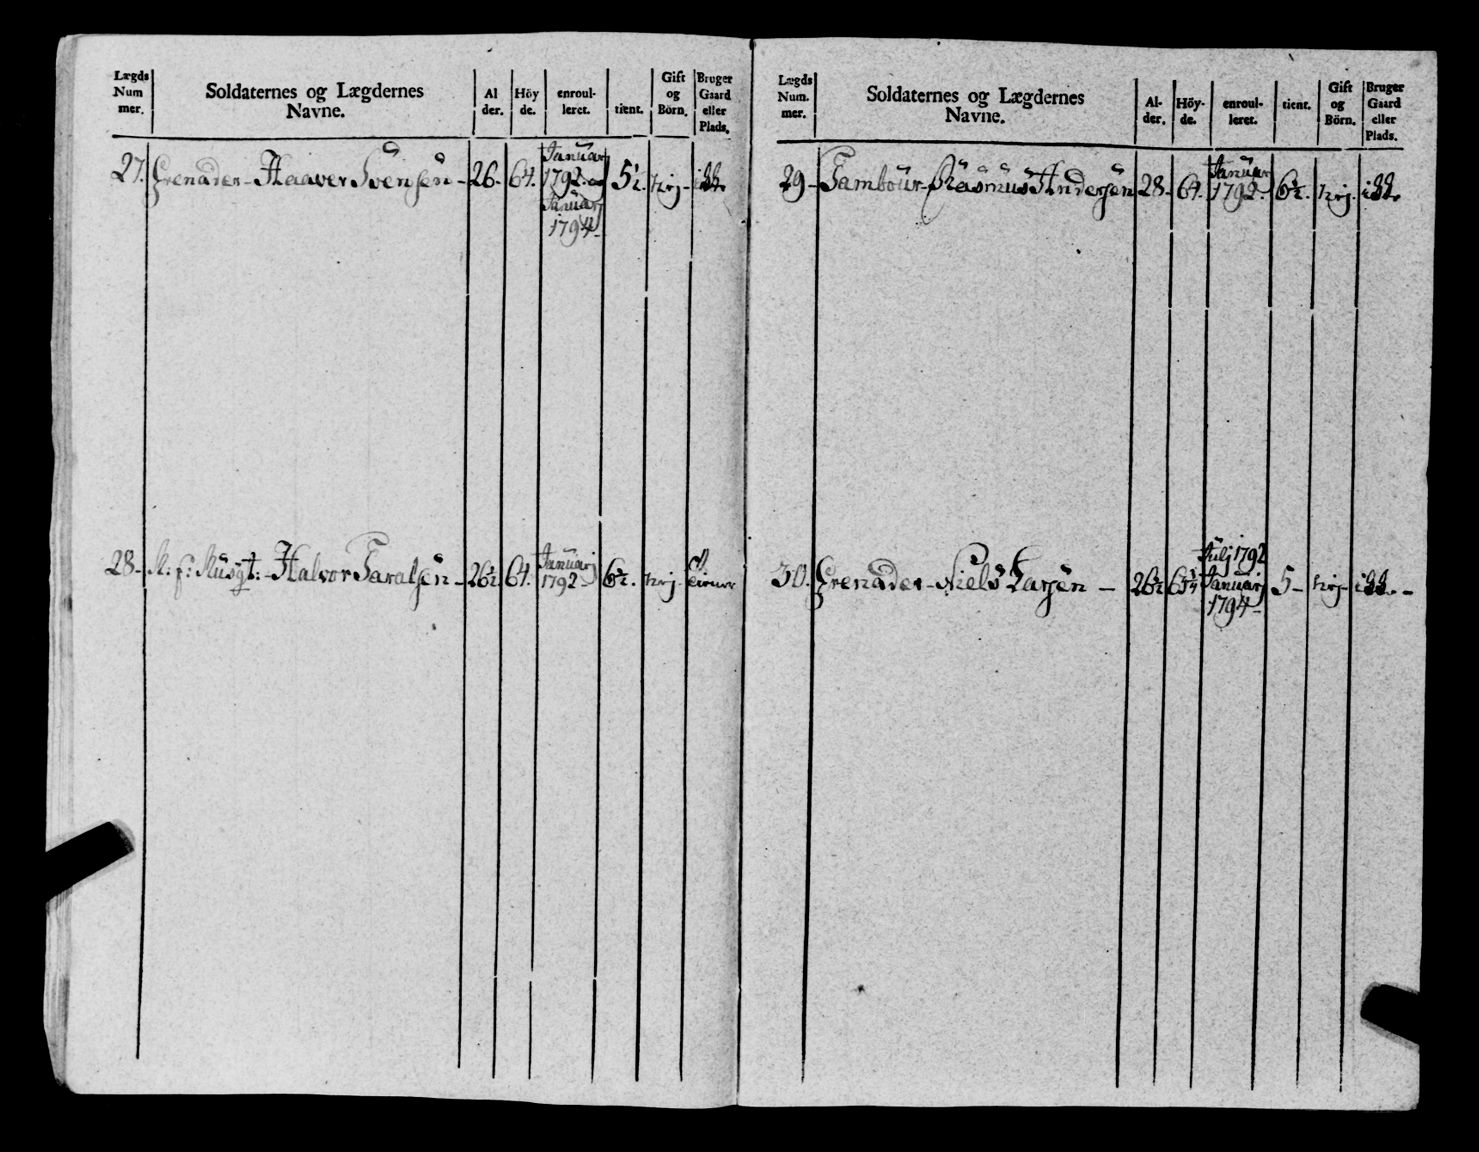 Lægds Num mer. Soldaternes og Lægdernes Navne. Al der. Höy de. enroul- leret. tient. Gift og Börn. Bruger Gaard eller Plads.
27. Grenader - Haaver Svensen - 26. 64. Januar 1792. og Januarj 1794 - 5½. nej - ikke
28. Halvor Taralsen - 26½ 64. Januarj 1792 6½. nej -
Lægds Num. mer. Soldaternes og Lægdernes Navne. Al- der. Höy- de. enroul- leret. tient. Gift og Börn. Bruger Gaard eller Plads.
29 - Tambour - Rasmus Andersen 28. 64. Januar 1792. 6½. nej. ikke
30. Grenader - Niels Larsen - 26½ 63¼ Julj 1792 Januarj 1794 - 5 - nej - ikke -